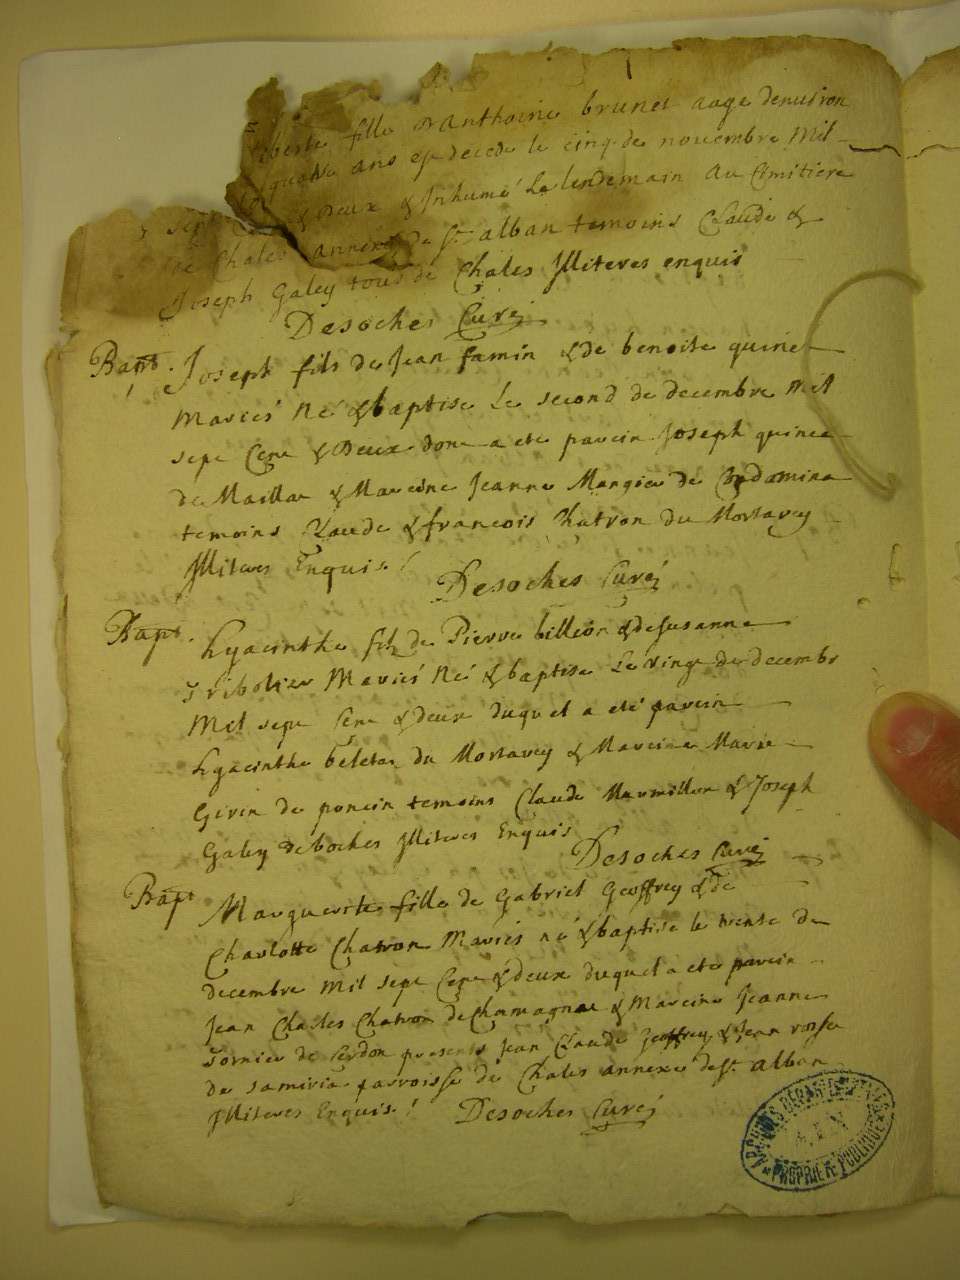 fille d'Anthoine brunet aage denviron
quatre ans est decede le cinq de novembre Mil
sept & deux & Inhumé Le lendemain Au Cimitiere
de Chales annexe de St alban temoins Claude &
Joseph Galey tous de Chales Illiteres enquis
Desoches Curé
Bapt. Joseph fils de Jean famin & de benoite quinet
Mariés Né & baptise Le second de decembre Mil
sept Cent & deux dont a ete parein Joseph quinet
de Maillat & Mareine Jeanne Mangier de Condamina
temoins Claude & francois Chatron du Mortarey
Illiteres Enquis
Desoches Curé
Bapt. Hyacinthe filz de Pierre billion & de susanne
Tribolier Mariés Né & baptise Le vingt de decembr
Mil sept Cent & deux duquel a eté parein
Hyacinthe beleton du Mortarey & Mareine Marie
Givin de poncin temoins Claude Marmillon & Joseph
Galey de boches Illiteres Enquis
Desoches Curé
Bapt Marguerite fille de Gabriel Geoffrey & de
Charlotte Chatron Mariés né & baptise le trente de
decembre Mil sept Cent & deux duquel a ete parein
Jean Charles Chatron de Chamagnat & Mareine Jeanne
Tornier de Cerdon presents Jean Claude Geoffrey & Jean rosse
de samiria parroisse de Chales annexe de St alban
Illiteres Enquis Desoches Curé
ARCHIVES DEPARTEMENTALES
AIN
PROPRIETE PUBLIQUE